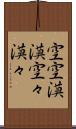 空空漠
漠空々
漠々